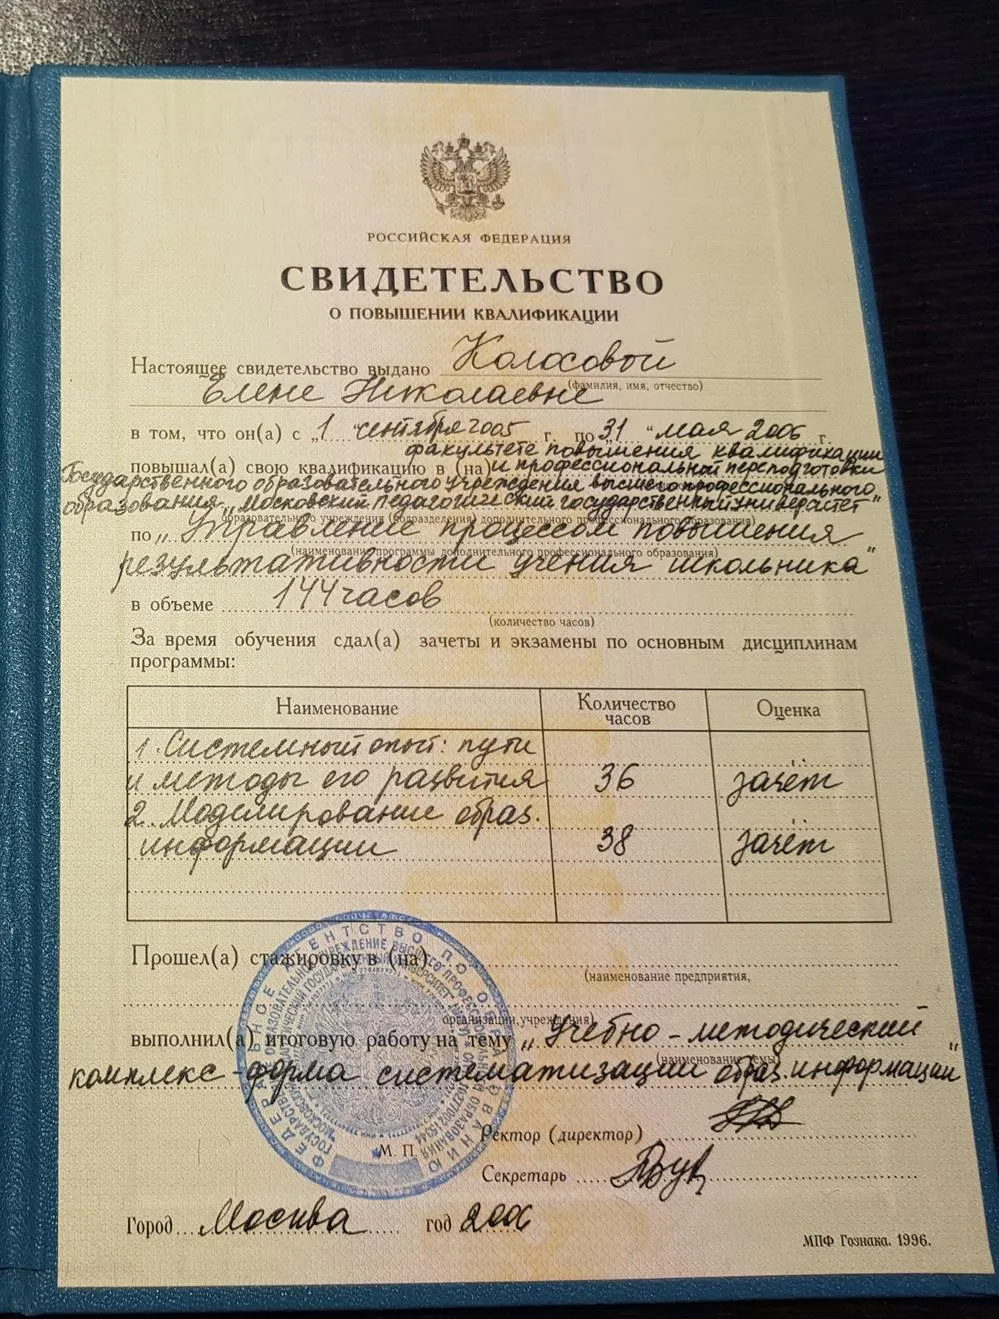 РОССИЙСКАЯ ФЕДЕРАЦИЯ
СВИДЕТЕЛЬСТВО
О ПОВЫШЕНИИ КВАЛИФИКАЦИИ
Настоящее свидетельство выдано Колосовой
(фамилия, имя, отчество)
Елене Николаевне
в том, что он(а) с „1 " сентября 2005 г. по 31 " мая 2006 г.
факультете повышения квалификации
повышал(а) свою квалификацию в (на) и профессиональной переподготовки
Государственного образовательного учреждения высшего профессионального
образования „Московский педагогический государственный университет"
образовательного учреждения (подразделения) дополнительного профессионального образования)
по „Управление процессом повышения
(наименование программы дополнительного профессионального образования)
результативности учения школьника"
в объеме 144 часов
(количество часов)
За время обучения сдал(а) зачеты и экзамены по основным дисциплинам
программы:
Наименование Количество часов Оценка
1. Системный опыт: пути
и методы его развития 36 зачёт
2. Моделирование образ.
информации 38 зачёт
Прошел(а) стажировку в (на)
(наименование предприятия,
организации, учреждения)
выполнил(а) итоговую работу на тему „Учебно-методический
(наименование темы)
комплекс-форма систематизации образ. информации"
Ректор (директор)
М. П.
Секретарь
Город Москва год 2006
МПФ Гознака. 1996.
ФЕДЕРАЛЬНОЕ АГЕНТСТВО ПО ОБРАЗОВАНИЮ